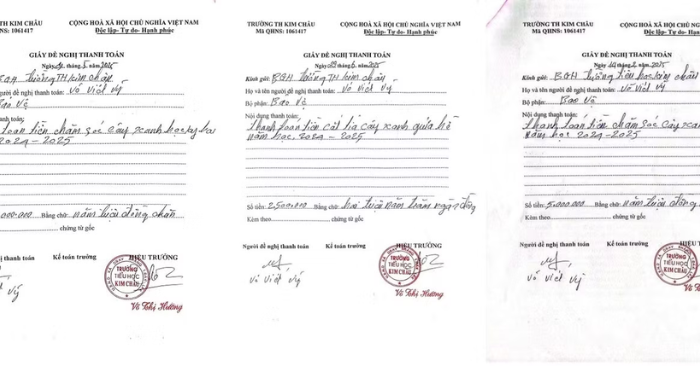 TH KIM CHÂU
NS: 1061417
CỘNG HOÀ XÃ HỘI CHỦ NGHĨA VIỆT NAM
Độc lập- Tự do- Hạnh phúc
GIẤY ĐỀ NGHỊ THANH TOÁN
BGH trường TH Kim Châu
gười đề nghị thanh toán: Võ Viết Vỹ
Bảo Vệ
g thanh toán:
toán tiền chăm sóc cây xanh
2024-2025
000.000 Bằng chữ: năm triệu đồng chẵn
chứng từ gốc
hị thanh toán Kế toán trưởng HIỆU TRƯỞNG
TRƯỜNG
TIỂU HỌC
KIM CHÂU
Võ Thị Hường
TRƯỜNG TH KIM CHÂU
Mã QHNS: 1061417
CỘNG HOÀ XÃ HỘI CHỦ NGHĨA VIỆT NAM
Độc lập- Tự do- Hạnh phúc
GIẤY ĐỀ NGHỊ THANH TOÁN
Kính gửi: BGH trường TH Kim Châu
Họ và tên người đề nghị thanh toán: Võ Viết Vỹ
Bộ phận: Bảo Vệ
Nội dung thanh toán:
thanh toán tiền cắt tỉa cây xanh giữa kì
năm học 2024-2025
Số tiền: 2.500.000 Bằng chữ: hai triệu năm trăm ngàn đồng
Kèm theo chứng từ gốc
Người đề nghị thanh toán Kế toán trưởng HIỆU TRƯỞNG
TRƯỜNG
TIỂU HỌC
KIM CHÂU
Võ Viết Vỹ
Võ Thị Hường
TRƯỜNG TH KIM CHÂU
Mã QHNS: 1061417
CỘNG HOÀ XÃ HỘI CHỦ NG
Độc lập- Tự do-
GIẤY ĐỀ NGHỊ THANH TOÁN
Kính gửi: BGH trường tiểu học Kim Châu
Họ và tên người đề nghị thanh toán: Võ Viết Vỹ
Bộ phận: Bảo Vệ
Nội dung thanh toán:
thanh toán tiền chăm sóc cây xan
năm học 2024-2025
Số tiền: 5.000.000 Bằng chữ: năm triệu đồng
Kèm theo chứng từ gốc
Người đề nghị thanh toán Kế toán trưởng
TRƯỜNG
TIỂU HỌC
KIM CHÂU
Võ Viết Vỹ
Võ